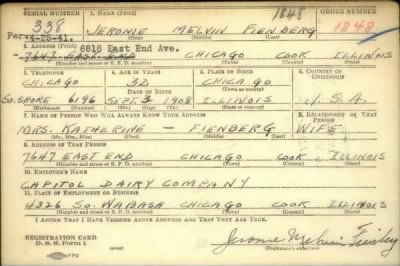 SERIAL NUMBER 1. NAME (Print) 1848 ORDER NUMBER
338 JERONIE MELVIN FIENBERG 1848
Per. 4-28-41. (First) (Middle) (Last)
2. ADDRESS (Print) 6818 East End Ave.
7647 EAST END CHICAGO COOK ILLINOIS
(Number and street or R. F. D. number) (Town) (County) (State)
3. TELEPHONE 4. AGE IN YEARS 5. PLACE OF BIRTH 6. COUNTRY OF CITIZENSHIP
CHICAGO 32 CHICAGO
(Exchange) DATE OF BIRTH (Town or county)
SO. SHORE 6196 SEPT. 3 1908 ILLINOIS U.S.A.
(Number) (Mo.) (Day) (Yr.) (State or country)
7. NAME OF PERSON WHO WILL ALWAYS KNOW YOUR ADDRESS 8. RELATIONSHIP OF THAT PERSON
MRS. KATHERINE — FIENBERG WIFE
(Mr., Mrs., Miss) (First) (Middle) (Last)
9. ADDRESS OF THAT PERSON
7647 EAST END CHICAGO COOK ILLINOIS
(Number and street or R. F. D. number) (Town) (County) (State)
10. EMPLOYER'S NAME
CAPITOL DAIRY COMPANY
11. PLACE OF EMPLOYMENT OR BUSINESS
4326 SO. WABASH CHICAGO COOK ILLINOIS
(Number and street or R. F. D. number) (Town) (County) (State)
I AFFIRM THAT I HAVE VERIFIED ABOVE ANSWERS AND THAT THEY ARE TRUE.
REGISTRATION CARD
D. S. S. Form 1 Jerome Melvin Fienberg